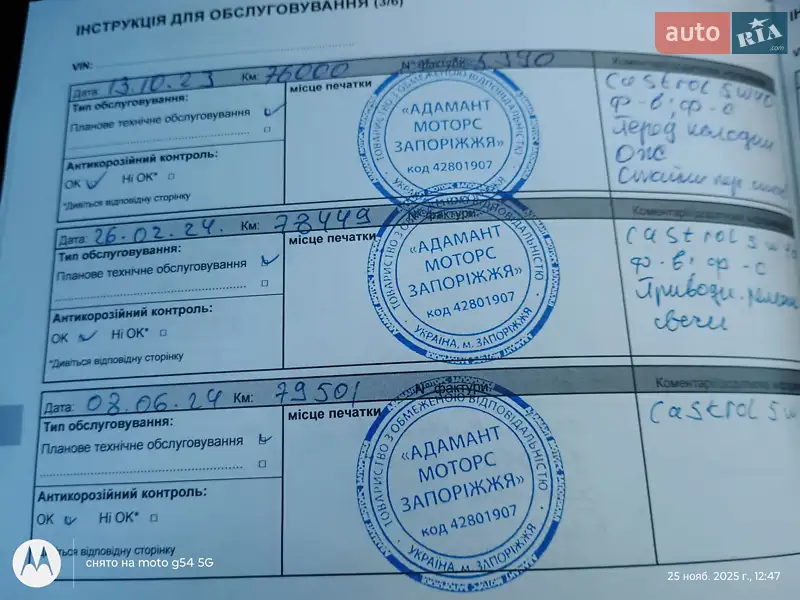 ІНСТРУКЦІЯ ДЛЯ ОБСЛУГОВУВАННЯ (3/6)
auto RIA .com
VIN:
Дата: 13.10.23 Км: 76000 № фактури 5390
Тип обслуговування:
Планове технічне обслуговування
Антикорозійний контроль:
ОК Ні ОК*
*Дивіться відповідну сторінку
місце печатки
ТОВАРИСТВО З ОБМЕЖЕНОЮ ВІДПОВІДАЛЬНІСТЮ
«АДАМАНТ
МОТОРС
ЗАПОРІЖЖЯ»
код 42801907
Коментарі
Castrol 5w40
Ф-в; ф-с
Перед колодки
ОЖ
Дата: 26.02.24. Км: 78449 № фактури
Тип обслуговування:
Планове технічне обслуговування
Антикорозійний контроль:
ОК Ні ОК*
*Дивіться відповідну сторінку
місце печатки
ТОВАРИСТВО З ОБМЕЖЕНОЮ ВІДПОВІДАЛЬНІСТЮ
«АДАМАНТ
МОТОРС
ЗАПОРІЖЖЯ»
код 42801907
УКРАЇНА, м. ЗАПОРІЖЖЯ
Коментарі
Castrol 5w
ф-в; ф-с
Приводн. ремень
свечи
Дата: 03.06.24 Км: 79501 № фактури
Тип обслуговування:
Планове технічне обслуговування
Антикорозійний контроль:
ОК Ні ОК*
відповідну сторінку
місце печатки
ТОВАРИСТВО З ОБМЕЖЕНОЮ ВІДПОВІДАЛЬНІСТЮ
«АДАМАНТ
МОТОРС
ЗАПОРІЖЖЯ»
код 42801907
УКРАЇНА, м. ЗАПОРІЖЖЯ
Коментарі
Castrol 5w
снято на moto g54 5G
25 нояб. 2025 г., 12:47